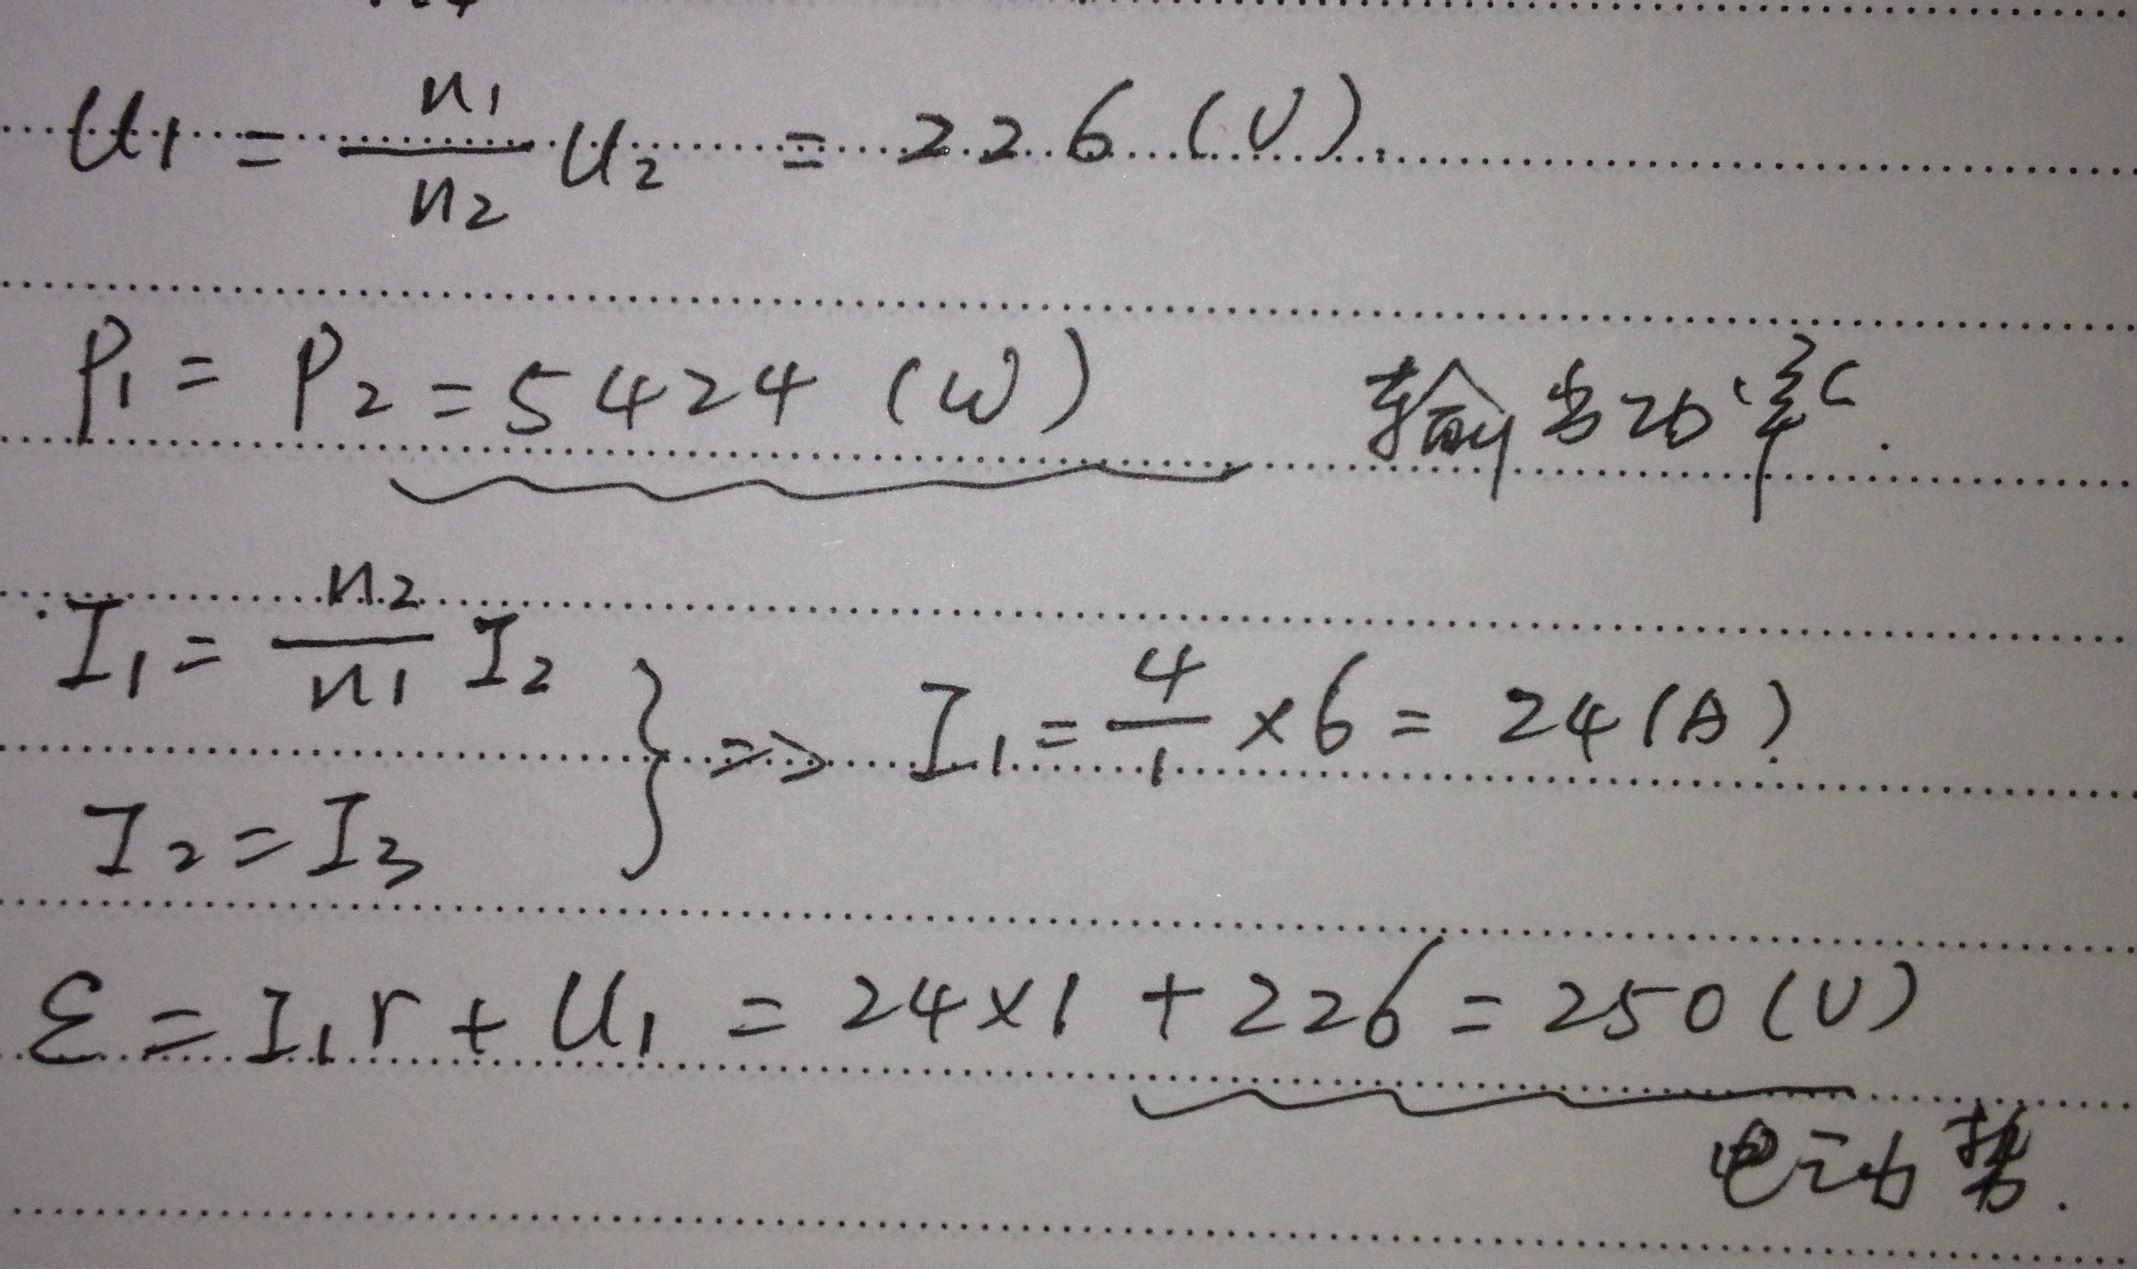 U₁ = n₁/n₂ U₂ = 226 (V).
P₁ = P₂ = 5424 (W) 输出功率.
I₁ = n₂/n₁ I₂
I₂ = I₃ } => I₁ = 4/1 × 6 = 24 (A).
ε = I₁r + U₁ = 24×1 + 226 = 250 (V)
电动势.